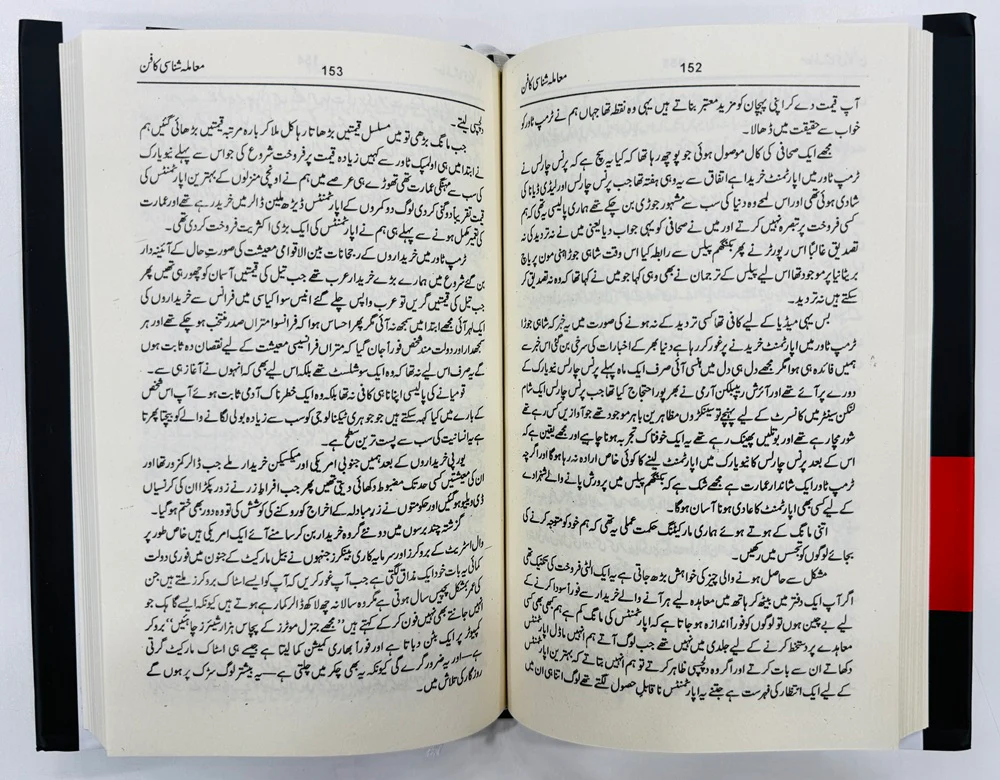 152
معاملہ شناسی کا فن
آپ قیمت دے کر اپنی پہچان کو مزید معتبر بناتے ہیں یہی وہ نقطہ تھا جہاں ہم نے ٹرمپ ٹاور کو
خواب سے حقیقت میں ڈھالا۔
مجھے ایک صحافی کی کال موصول ہوئی جو پوچھ رہا تھا کہ کیا یہ سچ ہے کہ پرنس چارلس نے
ٹرمپ ٹاور میں اپارٹمنٹ خریدا ہے اتفاق سے یہ وہی ہفتہ تھا جب پرنس چارلس اور لیڈی ڈیانا کی
شادی ہوئی تھی اور اس لمحے وہ دنیا کی سب سے مشہور جوڑی بن چکے تھے ہماری پالیسی یہ تھی کہ ہم
کسی فروخت پر تبصرہ نہیں کرتے اور میں نے صحافی کو یہی جواب دیا یعنی میں نے نہ تردید کی نہ
تصدیق غالباً اس رپورٹر نے پھر بکنگھم پیلس سے رابطہ کیا اس وقت شاہی جوڑا ہنی مون پر یاچ
بریٹانیا پر موجود تھا اس لیے پیلس کے ترجمان نے بھی وہی کہا جو میں نے کہا تھا کہ وہ نہ تصدیق کر
سکتے ہیں نہ تردید۔
بس یہی میڈیا کے لیے کافی تھا کسی تردید کے نہ ہونے کی صورت میں یہ خبر کہ شاہی جوڑا
ٹرمپ ٹاور میں اپارٹمنٹ خریدنے پر غور کر رہا ہے دنیا بھر کے اخبارات کی سرخی بن گئی اس خبر سے
ہمیں فائدہ ہی ہوا مگر مجھے دل ہی دل میں ہنسی آئی صرف ایک ماہ پہلے پرنس چارلس نیویارک کے
دورے پر آئے تھے اور آئرش ریپبلکن آرمی نے بھرپور احتجاج کیا تھا جب پرنس چارلس ایک شام
لنکن سینٹر میں کانسرٹ کے لیے پہنچے تو سینکڑوں مظاہرین باہر موجود تھے جو آوازیں کس رہے تھے
شور مچا رہے تھے اور بوتلیں پھینک رہے تھے یہ ایک خوفناک تجربہ ہونا چاہیے اور مجھے یقین ہے کہ
اس کے بعد پرنس چارلس کا نیویارک میں اپارٹمنٹ لینے کا کوئی خاص ارادہ نہ رہا ہوگا اور اگرچہ
ٹرمپ ٹاور ایک شاندار عمارت ہے مجھے شک ہے کہ بکنگھم پیلس میں پرورش پانے والے شہزادے
کے لیے کسی بھی اپارٹمنٹ کا عادی ہونا آسان ہوگا۔
اتنی مانگ کے ہوتے ہوئے ہماری مارکیٹنگ حکمت عملی یہ تھی کہ ہم خود کو متوجہ کرنے کی
بجائے لوگوں کو تجسس میں رکھیں۔
مشکل سے حاصل ہونے والی چیز کی خواہش بڑھ جاتی ہے یہ ایک الٹی فروخت کی تکنیک تھی
اگر آپ ایک دفتر میں بیٹھ کر ہاتھ میں معاہدہ لیے ہر آنے والے خریدار سے فوراً سودا کرنے کے
لیے بے چین ہوں تو لوگوں کو فوراً اندازہ ہو جاتا ہے کہ اپارٹمنٹس کی مانگ کم ہے ہم کبھی بھی کسی
معاہدے پر دستخط کرنے کے لیے جلدی میں نہیں تھے جب لوگ آتے ہم انہیں ماڈل اپارٹمنٹس
دکھاتے ان سے بات کرتے اور اگر وہ دلچسپی ظاہر کرتے تو ہم انہیں بتاتے کہ بہترین اپارٹمنٹس
کے لیے ایک انتظار کی فہرست ہے جتنے یہ اپارٹمنٹس ناقابلِ حصول لگتے تھے لوگ اتنا ہی ان میں
153
معاملہ شناسی کا فن
دلچسپی لیتے۔
جب مانگ بڑھی تو میں مسلسل قیمتیں بڑھاتا رہا کل ملا کر بارہ مرتبہ قیمتیں بڑھائی گئیں ہم
نے ابتدا میں ہی اولمپک ٹاور سے کہیں زیادہ قیمت پر فروخت شروع کی جو اس سے پہلے نیویارک
کی سب سے مہنگی عمارت تھی تھوڑے ہی عرصے میں ہم نے اونچی منزلوں کے بہترین اپارٹمنٹس کی
قیمت تقریباً دوگنی کر دی لوگ دو کمروں کے اپارٹمنٹس ڈیڑھ ملین ڈالر میں خرید رہے تھے اور عمارت
کی تعمیر مکمل ہونے سے پہلے ہی ہم نے اپارٹمنٹس کی ایک بڑی اکثریت فروخت کر دی تھی۔
ٹرمپ ٹاور میں خریداروں کے رجحانات بین الاقوامی معیشت کی صورتِ حال کے آئینہ دار
بن گئے شروع میں ہمارے بڑے خریدار عرب تھے جب تیل کی قیمتیں آسمان کو چھو رہی تھیں پھر
جب تیل کی قیمتیں گریں تو عرب واپس چلے گئے انیس سو اکیاسی میں فرانس سے خریداروں کی
ایک لہر آئی مجھے ابتدا میں سمجھ نہ آئی مگر پھر احساس ہوا کہ فرانسوا متراں صدر منتخب ہو چکے تھے اور ہر
سمجھدار اور دولت مند شخص فوراً جان گیا کہ متراں فرانسیسی معیشت کے لیے نقصان دہ ثابت ہوں
گے یہ صرف اس لیے نہ تھا کہ وہ ایک سوشلسٹ تھے بلکہ اس لیے بھی کہ انہوں نے آغاز ہی سے۔
قومیانے کی پالیسی اپنانا ہی کافی نہ تھا بلکہ وہ ایک خطرناک آدمی ثابت ہوئے آپ اس شخص
کے بارے میں کیا کہہ سکتے ہیں جو جوہری ٹیکنالوجی کو سب سے زیادہ بولی لگانے والے کو بیچتا پھرتا
ہے یہ انسانیت کی سب سے پست ترین سطح ہے۔
یورپی خریداروں کے بعد ہمیں جنوبی امریکی اور میکسیکن خریدار ملے جب ڈالر کمزور تھا اور
ان کی معیشتیں کسی حد تک مضبوط دکھائی دیتی تھیں پھر جب افراطِ زر نے زور پکڑا ان کی کرنسیاں
ڈی ویلیو ہو گئیں اور حکومتوں نے زرِ مبادلہ کے اخراج کو روکنے کی کوشش کی تو وہ دور بھی ختم ہو گیا۔
گزشتہ چند برسوں میں دو نئے گروہ خریدار بن کر سامنے آئے ایک امریکی ہیں خاص طور پر
وال اسٹریٹ کے بروکرز اور سرمایہ کاری بینکرز جنہوں نے بیل مارکیٹ کے جنون میں فوری دولت
کمائی یہ بات خود ایک مذاق لگتی ہے جب آپ غور کریں کہ آپ کو ایسے اسٹاک بروکرز ملتے ہیں جن
کی عمر بمشکل پچیس سال ہوتی ہے مگر وہ سالانہ چھ لاکھ ڈالر کما رہے ہوتے ہیں کیونکہ ایسے گاہک جو
انہیں جانتے بھی نہیں فون کر کے کہتے ہیں ”مجھے جنرل موٹرز کے پچاس ہزار شیئرز چاہئیں“ بروکر
کمپیوٹر پر ایک بٹن دباتا ہے اور فوراً بھاری کمیشن کما لیتا ہے جیسے ہی اسٹاک مارکیٹ گرتی
ہے—اور یہ ضرور گرے گی کیونکہ یہ بھی چکر میں چلتی ہے—یہ بیشتر لوگ سڑک پر ہوں گے
روزگار کی تلاش میں۔